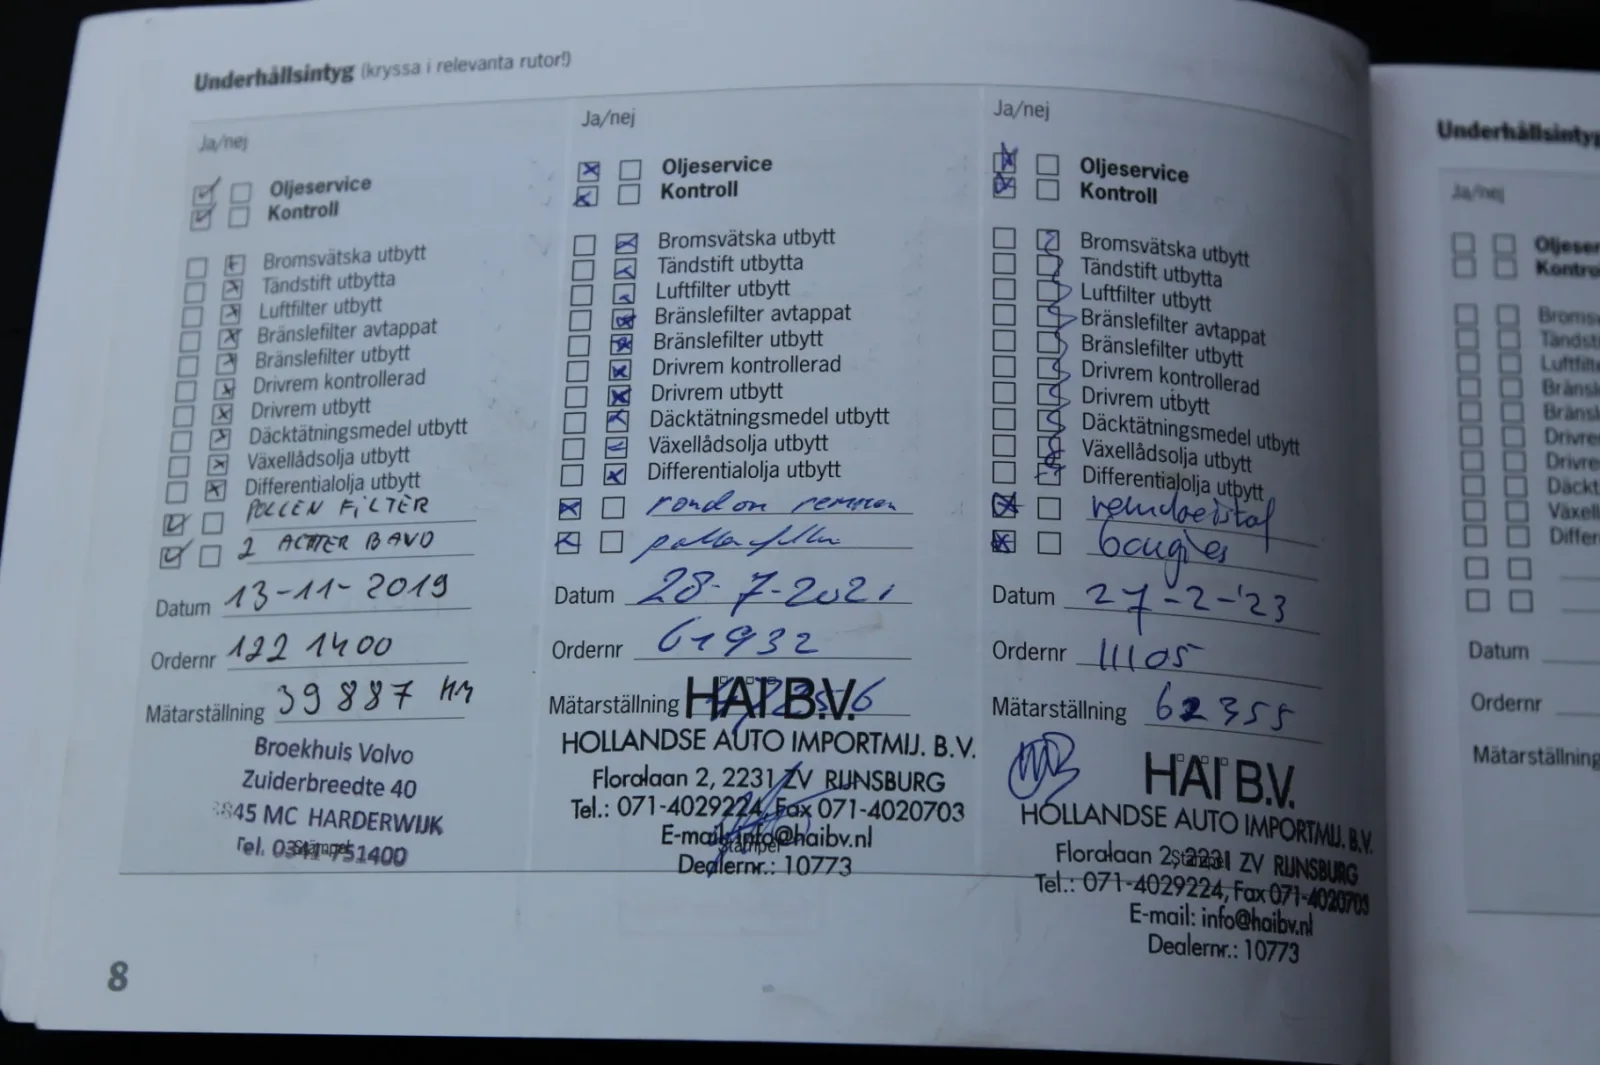 Underhållsintyg (kryssa i relevanta rutor!)
Ja/nej
Oljeservice
Kontroll
Bromsvätska utbytt
Tändstift utbytta
Luftfilter utbytt
Bränslefilter avtappat
Bränslefilter utbytt
Drivrem kontrollerad
Drivrem utbytt
Däcktätningsmedel utbytt
Växellådsolja utbytt
Differentialolja utbytt
POLLEN FILTER
2 ACHTER BAND
Datum 13-11-2019
Ordernr 122 1400
Mätarställning 39887 KM
Broekhuis Volvo
Zuiderbreedte 40
3845 MC HARDERWIJK
Tel. 0341-751400
Stämpel
Ja/nej
Oljeservice
Kontroll
Bromsvätska utbytt
Tändstift utbytta
Luftfilter utbytt
Bränslefilter avtappat
Bränslefilter utbytt
Drivrem kontrollerad
Drivrem utbytt
Däcktätningsmedel utbytt
Växellådsolja utbytt
Differentialolja utbytt
rondom remmen
Datum 28-7-2021
Ordernr 61932
Mätarställning
HAI B.V.
HOLLANDSE AUTO IMPORTMIJ. B.V.
Floralaan 2, 2231 ZV RIJNSBURG
Tel.: 071-4029224, Fax 071-4020703
E-mail: info@haibv.nl
Stämpel
Dealernr.: 10773
Ja/nej
Oljeservice
Kontroll
Bromsvätska utbytt
Tändstift utbytta
Luftfilter utbytt
Bränslefilter avtappat
Bränslefilter utbytt
Drivrem kontrollerad
Drivrem utbytt
Däcktätningsmedel utbytt
Växellådsolja utbytt
Differentialolja utbytt
remvloeistof
bougies
Datum 27-2-'23
Ordernr 11105
Mätarställning 62355
HAI B.V.
HOLLANDSE AUTO IMPORTMIJ. B.V.
Floralaan 2, 2231 ZV RIJNSBURG
Stämpel
Tel.: 071-4029224, Fax 071-4020703
E-mail: info@haibv.nl
Dealernr.: 10773
8
Underhållsintyg
Ja/nej
Datum
Ordernr
Mätarställning